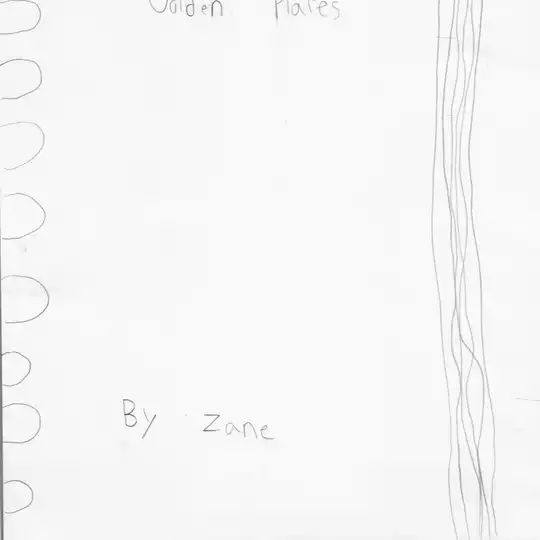 Golden Plates
By Zane